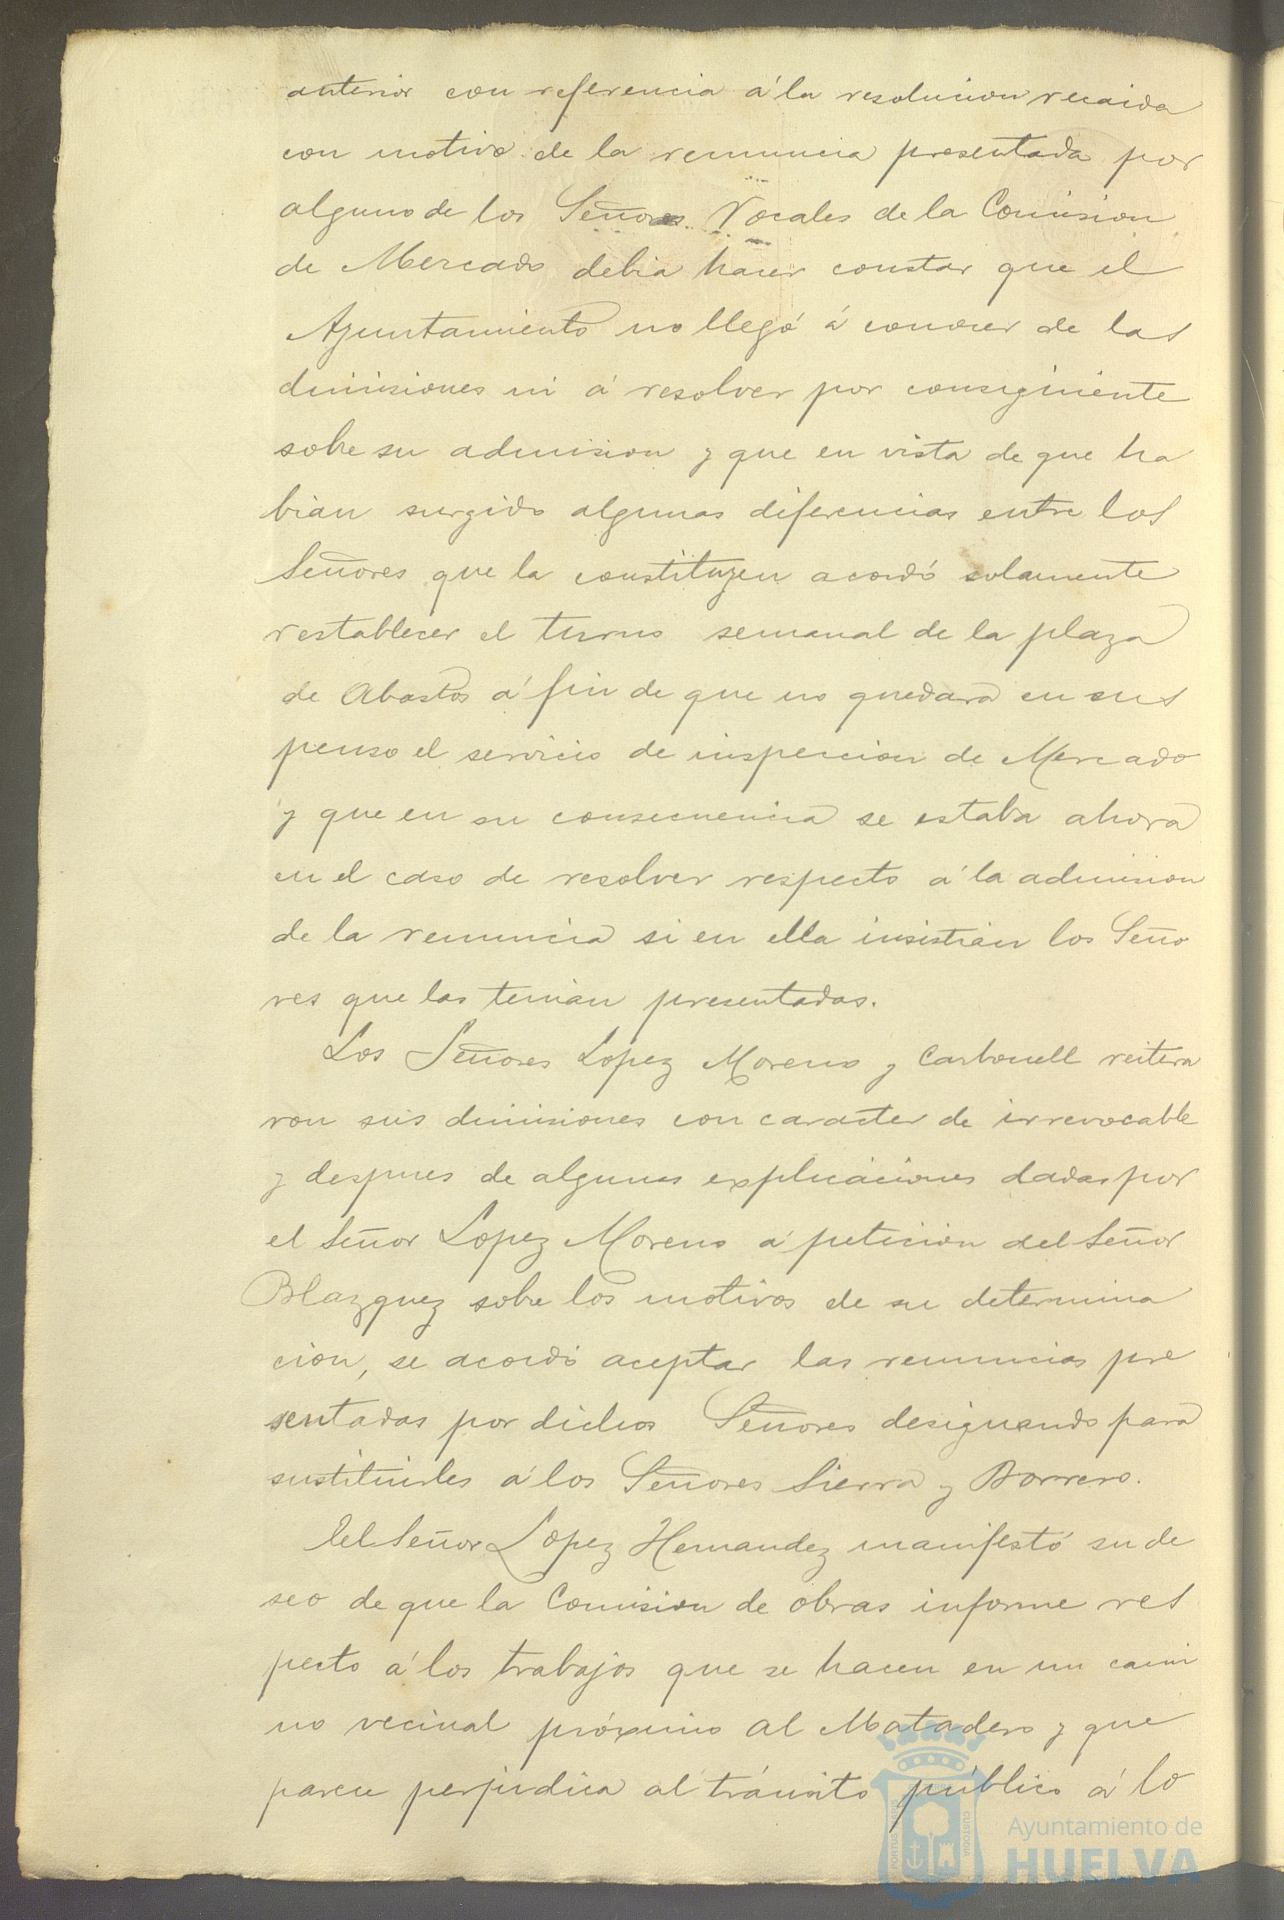 anterior con referencia á la resolucion recaida
con motivo de la renuncia presentada por
alguno de los Señores Vocales de la Comision
de Mercado debia hacer constar que el
Ayuntamiento no llegó á conocer de las
dimisiones ni á resolver por consiguiente
sobre su admision y que en vista de que ha
bian surgido algunas diferencias entre los
Señores que la constituyen acordó solamente
restablecer el turno semanal de la plaza
de Abastos á fin de que no quedara en sus
penso el servicio de inspeccion de Mercado
y que en su consecuencia se estaba ahora
en el caso de resolver respecto á la admision
de la renuncia si en ella insistian los Seño
res que las tenian presentadas.
Los Señores Lopez Moreno y Carbonell reitera
ron sus dimisiones con caracter de irrevocable
y despues de algunas explicaciones dadas por
el Señor Lopez Moreno á peticion del Señor
Blazquez sobre los motivos de su determina
cion, se acordó aceptar las renuncias pre
sentadas por dichos Señores designando para
sustituirles á los Señores Sierra y Borrero.
El Señor Lopez Hernandez manifestó su de
seo de que la Comision de obras informe res
pecto á los trabajos que se hacen en un cami
no vecinal próximo al Matadero y que
parece perjudica al tránsito público á lo
Ayuntamiento de
HUELVA
PORTUS MARIS
CUSTODIA